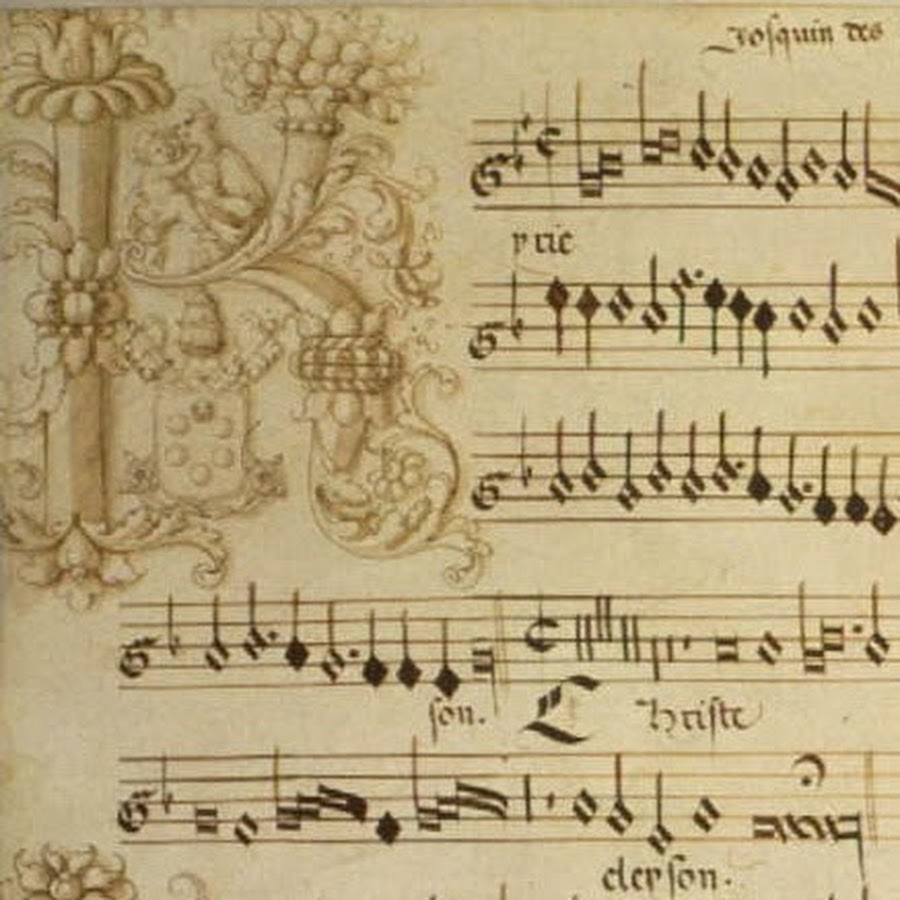 Josquin des
Kyrie
son. Christe
eleyson.